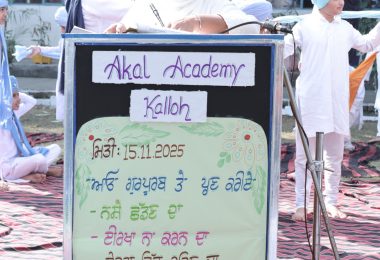 Akal Academy
Kalloh
ਮਿਤੀ: 15.11.2025
ਆਓ ਗੁਰਪੁਰਬ ਤੇ ਪ੍ਰਣ ਕਰੀਏ
- ਨਸ਼ੇ ਛੱਡਣ ਦਾ
- ਈਰਖਾ ਨਾ ਕਰਨ ਦਾ